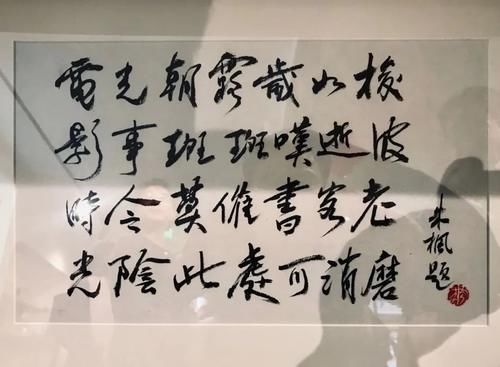 電光朝露歲如梭
影事班班嘆逝波
時令莫催書客老
光陰此處可消磨
朱楓題